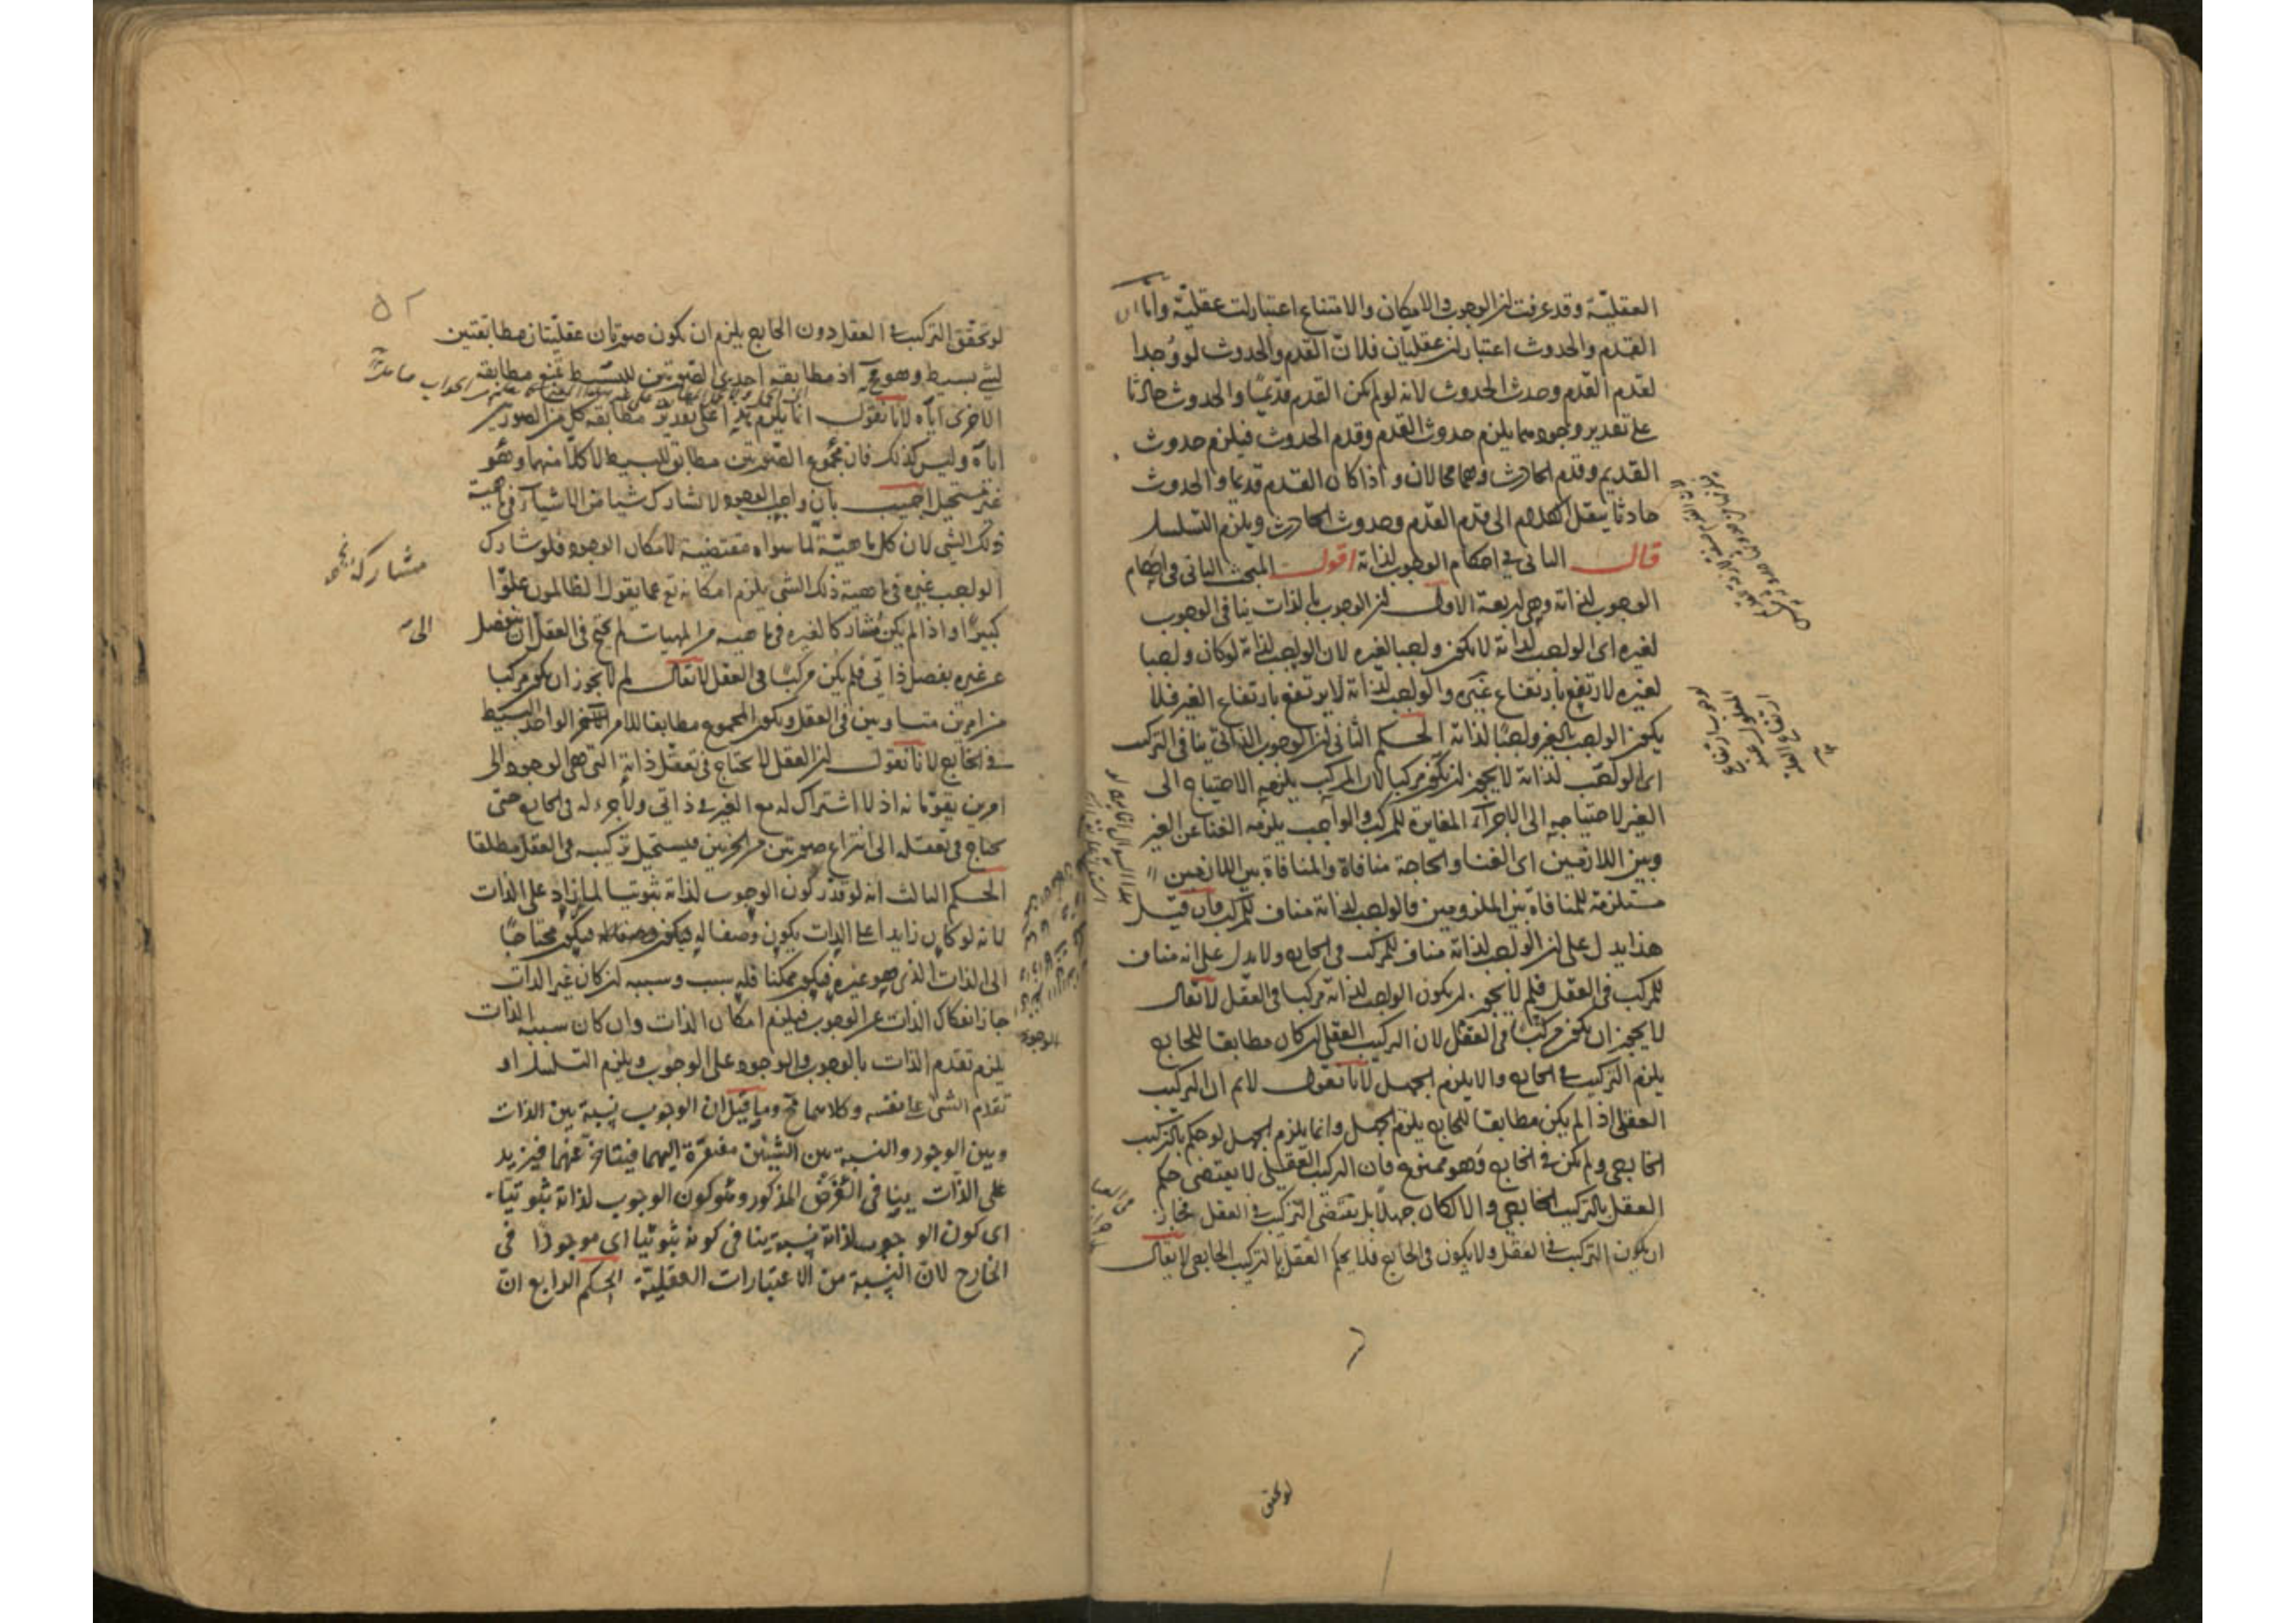 العقليّة وقد عرفت ان الوجوب والامكان والامتناع اعتبارات عقليّة واما ان
القدم والحدوث اعتباران عقليان فلانّ القدم والحدوث لو وُجدا
لقدم القدم وحدث الحدوث لانه لو لم يكن القدم قديمًا والحدوث حادثا
على تقدير وجودهما يلزم حدوث القدم وقدم الحدوث فيلزم حدوث
القديم وقدم الحادث وهما محالان واذا كان القدم قديما والحدوث
حادثا ينقل الكلام الى قدم القدم وحدوث الحادث ويلزم التسلسل
قال الثانى فى احكام الوجوب لذاته اقول المبحث الثانى فى احكام
الوجوب لذاته وهى اربعة الاول ان الوجوب بالذات ينافى الوجوب
لغيره اى الواجب لذاته لا يكون واجبا لغيره لان الواجب لذاته لو كان واجبا
لغيره لارتفع بارتفاع غيره والواجب لذاته لا يرتفع بارتفاع الغير فلا
يكون الواجب بالغير واجبًا لذاته الحكم الثانى ان الوجوب الذاتى ينافى التركيب
اى الواجب لذاته لا يجوز ان يكون مركبا لان المركب يلزمه الاحتياج الى
الغير لاحتياجه الى الاجزاء المغايرة للمركب والواجب يلزمه الغنا عن الغير
وبين اللازمين اى الغنا والحاجة منافاة والمنافاة بين اللازمين
مستلزمة للمنافاة بين الملزومين فالواجب لذاته مناف للمركب فان قيل
هذا يدل على ان الواجب لذاته مناف للمركب فى الخارج ولا يدل على انه مناف
للمركب فى العقل فلم لا يجوز ان يكون الواجب لذاته مركبا فى العقل لا يقال
لا يجوز ان يكون مركبًا فى العقل لان التركيب العقلى ان كان مطابقا للخارج
يلزم التركيب فى الخارج والا يلزم الجهل لانا نقول لا نم ان التركيب
العقلى اذا لم يكن مطابقا للخارج يلزم الجهل وانما يلزم الجهل لو حكم بالتركيب
الخارجى ولم يكن فى الخارج وهو ممنوع فان التركيب العقلى لا يقتضى حكم
العقل بالتركيب الخارجى والا لكان جهلًا بل يقتضى التركيب فى العقل فجاز
ان يكون التركيب فى العقل ولا يكون فى الخارج فلا يحكم العقل بالتركيب الخارجى لا يقال
لو تحقق
٥٢
لو تحقّق التركيب فى العقل دون الخارج يلزم ان يكون صورتان عقليّتان مطابقتين
لشئ بسيط وهو مح اذ مطابقة احدى الصورتين للبسيط تمنع مطابقة
الاخرى اياه لانا نقول انما يلزم على تقدير مطابقة كل من الصورتين
اياه وليس كذلك فان مجموع الصورتين مطابق للبسيط لا كلا منهما وهو
غير مستحيل اجيب بان واجب الوجود لا يشارك شيا من الاشياء فى ماهية
ذلك الشئ لان كل ماهيّة لما سواه مقتضية لامكان الوجود فلو شارك
الواجب غيره فى ماهية ذلك الشئ يلزم امكانه تع عما يقول الظالمون علوّا
كبيرًا واذا لم يكن مشاركا لغيره فى ماهية من المهيات لم يحتج فى العقل ان ينفصل
عن غيره بفصل ذاتى فلم يكن مركبًا فى العقل لا يقال لم لا يجوز ان يكون مركبا
من امرين متساويين فى العقل ويكون المجموع مطابقا للامر الواحد البسيط
فى الخارج لانا نقول ان العقل لا يحتاج فى تعقل ذاته التى هى الوجود الى
امرين يقوّمانه اذ لا اشتراك له مع الغير فى ذاتى ولا جزء له فى الخارج حتى
يحتاج فى تعقله الى انتزاع صورتين من الجزئين فيستحيل تركيبه فى العقل مطلقا
الحكم الثالث انه لو قدر كون الوجوب لذاته ثبوتيا لما زاد على الذات
لانه لو كان زايدا على الذات يكون وصفا له فيكون محتاجًا
الى الذات الذى هو غيره فيكون ممكنا فله سبب وسببه ان كان غير الذات
جاز انفكاك الذات عن الوجوب فيلزم امكان الذات وان كان سببه الذات
يلزم تقدم الذات بالوجوب والوجود على الوجوب ويلزم التسلسل او
تقدم الشئ على نفسه وكلاهما مح وما قيل ان الوجوب نسبة بين الذات
وبين الوجود والنسبة بين الشيئين مفتقرة اليهما فيتاخر عنهما فيزيد
على الذات ينافى الفرض المذكور وهو كون الوجوب لذاته ثبوتيا
اى كون الوجوب لذاته نسبة ينافى كونه ثبوتيا اى موجودًا فى
الخارج لانّ النسبة من الاعتبارات العقليّة الحكم الرابع انّ
مشاركة
الى